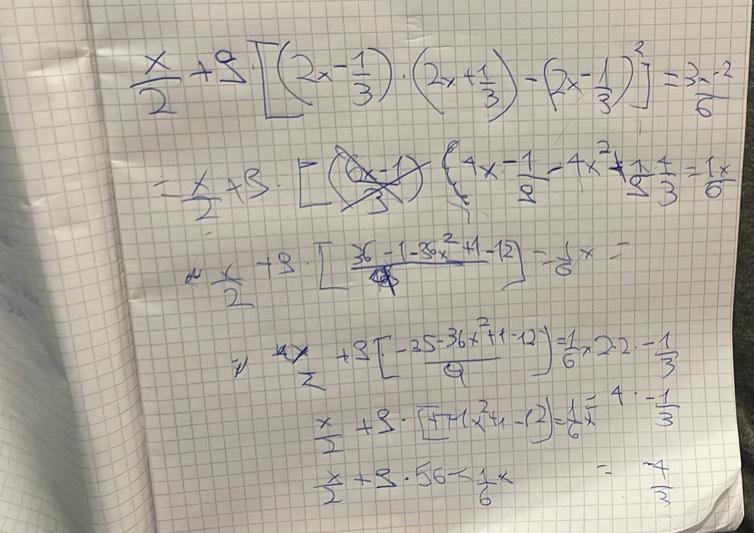 x/2 + 9·[(2x - 1/3)·(2x + 1/3) - (2x - 1/3)²] = 3x-2/6
= x/2 + 9·[ (4x - 1/9 - 4x² + 1/9 4/3 = 1x/6
x/2 + 9·[36 - 1 - 36x² + 1 - 12] = 1/6 x =
x/2 + 9[-35 - 36x² + 1 - 12/9] = 1/6 x 2·2·-1/3
x/2 + 9·[ -1x² + 1 - 12] = 1/6 x = 4·-1/3
x/2 + 9·56 - 1/6 x = -4/3